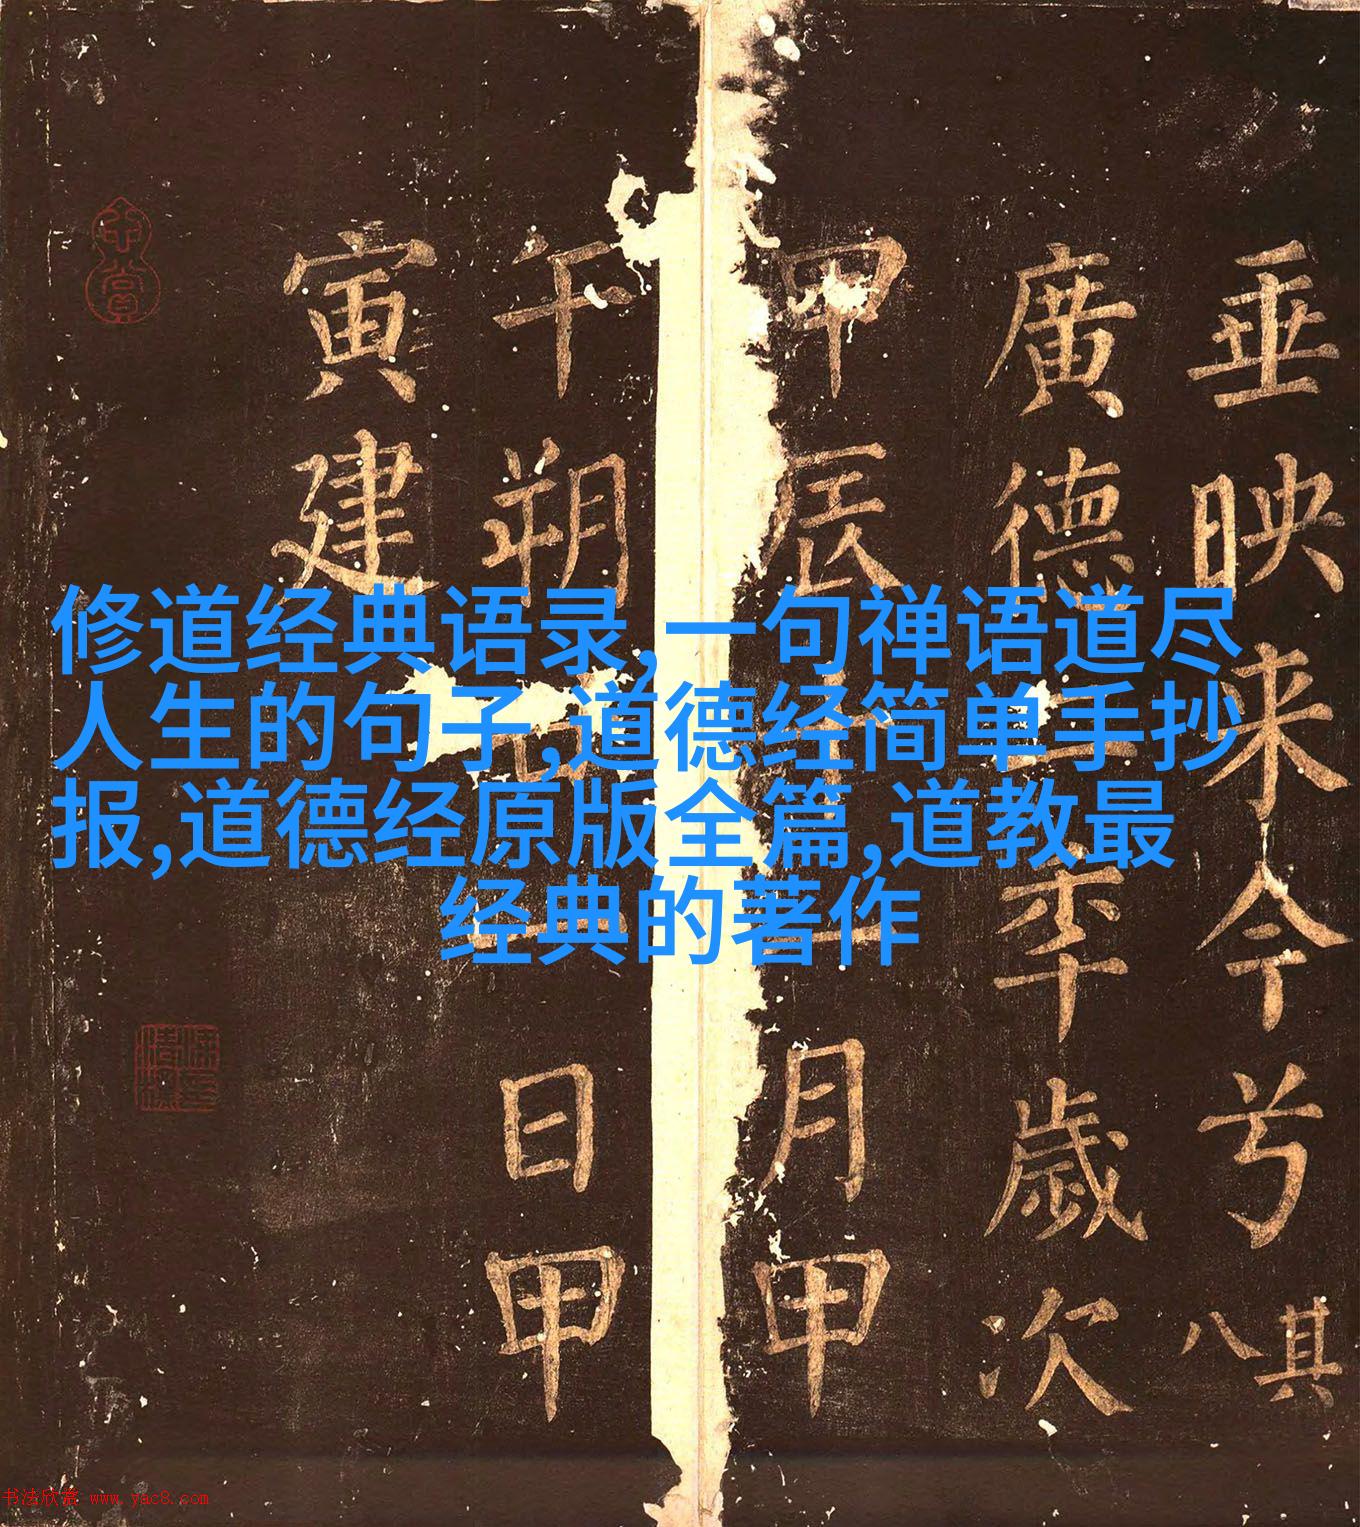 垂映来今兮其八
廣德二秊歲次
甲辰十一月甲
午朔日甲
寅建
修道经典语录,一句禅语道尽
人生的句子,道德经简单手抄
报,道德经原版全篇,道教最
经典的著作
书法欣赏 www.yac8.com